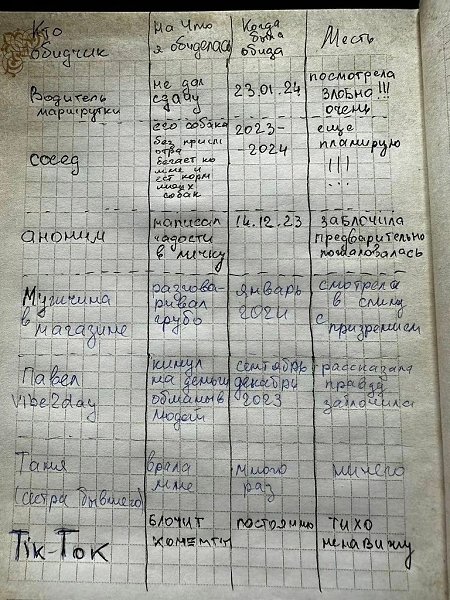 Кто обидчик
на что я обиделась
Когда была обида
Месть
Водитель маршрутки
не дал сдачу
23.01.24
посмотрела злобно!!! очень
сосед
его собака без присмотра бегает ко мне и ест корм моих собак
2023-2024
еще планирую !!! ...
аноним
написал гадости в личку
14.12.23
заблочила предварительно пожаловалась
Мужчина в магазине
разговаривал грубо
январь 2024
смотрела в спину с призрением
Павел vibe2day
кинул на деньги обманыв людей
сентябрь декабрь 2023
рассказала правду заблочила
Таня (сестра бывшего)
врала мне
много раз
ничего
Tik-Tok
блочит комент
постоянно
тихо ненавижу